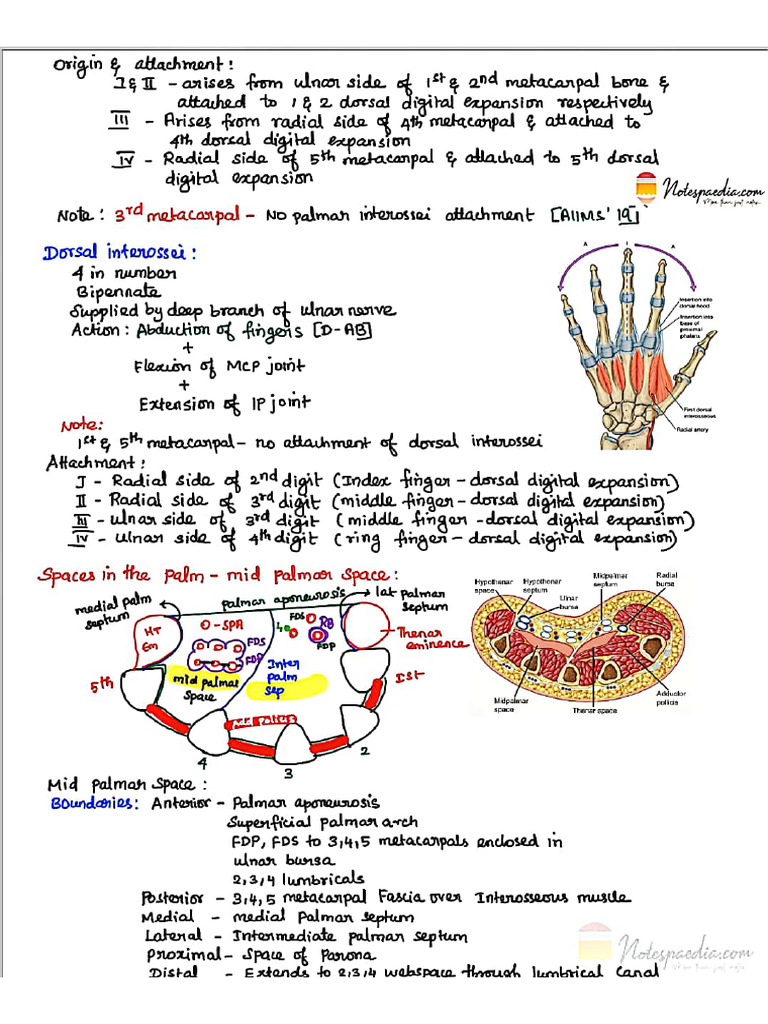 Origin & attachment:
I & II - arises from ulnar side of 1st & 2nd metacarpal bone &
attached to 1 & 2 dorsal digital expansion respectively
III - Arises from radial side of 4th metacarpal & attached to
4th dorsal digital expansion
IV - Radial side of 5th metacarpal & attached to 5th dorsal
digital expansion
Notespaedia.com
More than just notes
Note: 3rd metacarpal - No palmar interossei attachment [AIIMS' 19]
Dorsal interossei:
4 in number
Bipennate
Supplied by deep branch of ulnar nerve
Action: Abduction of fingers [D-AB]
+
Flexion of MCP joint
+
Extension of IP joint
A
I
A
Insertion into
dorsal hood
Insertion into
base of
proximal
phalanx
First dorsal
interosseous
Radial artery
Note:
1st & 5th metacarpal - no attachment of dorsal interossei
Attachment:
I - Radial side of 2nd digit (Index finger - dorsal digital expansion)
II - Radial side of 3rd digit (middle finger - dorsal digital expansion)
III - ulnar side of 3rd digit (middle finger - dorsal digital expansion)
IV - ulnar side of 4th digit (ring finger - dorsal digital expansion)
Spaces in the palm - mid palmar space:
medial palm
septum
palmar aponeurosis
lat palmar
septum
HT
Em
SPA
FDS
FDP
mid palmar
space
4
FDS
RB
FDP
Inter
palm
sep
Thenar
eminence
5th
1st
4
3
2
Hypothenar
space
Hypothenar
septum
Ulnar
bursa
Midpalmar
septum
Radial
bursa
Midpalmar
space
Thenar space
Adductor
pollicis
Mid palmar space:
Boundaries: Anterior - Palmar aponeurosis
Superficial palmar arch
FDP, FDS to 3,4,5 metacarpals enclosed in
ulnar bursa
2,3,4 lumbricals
Posterior - 3,4,5 metacarpal Fascia over Interosseous muscle
Medial - medial Palmar septum
Lateral - Intermediate palmar septum
Proximal - Space of Parona
Distal - Extends to 2,3,4 webspace through lumbrical canal
Notespaedia.com
More than just notes